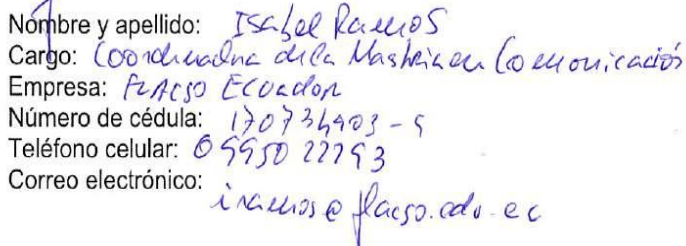 Nombre y apellido: Isabel Ramos
Cargo: Coordinadora de la Maestría en Comunicación
Empresa: FLACSO Ecuador
Número de cédula:
Teléfono celular:
Correo electrónico:
iramos@flacso.edu.ec